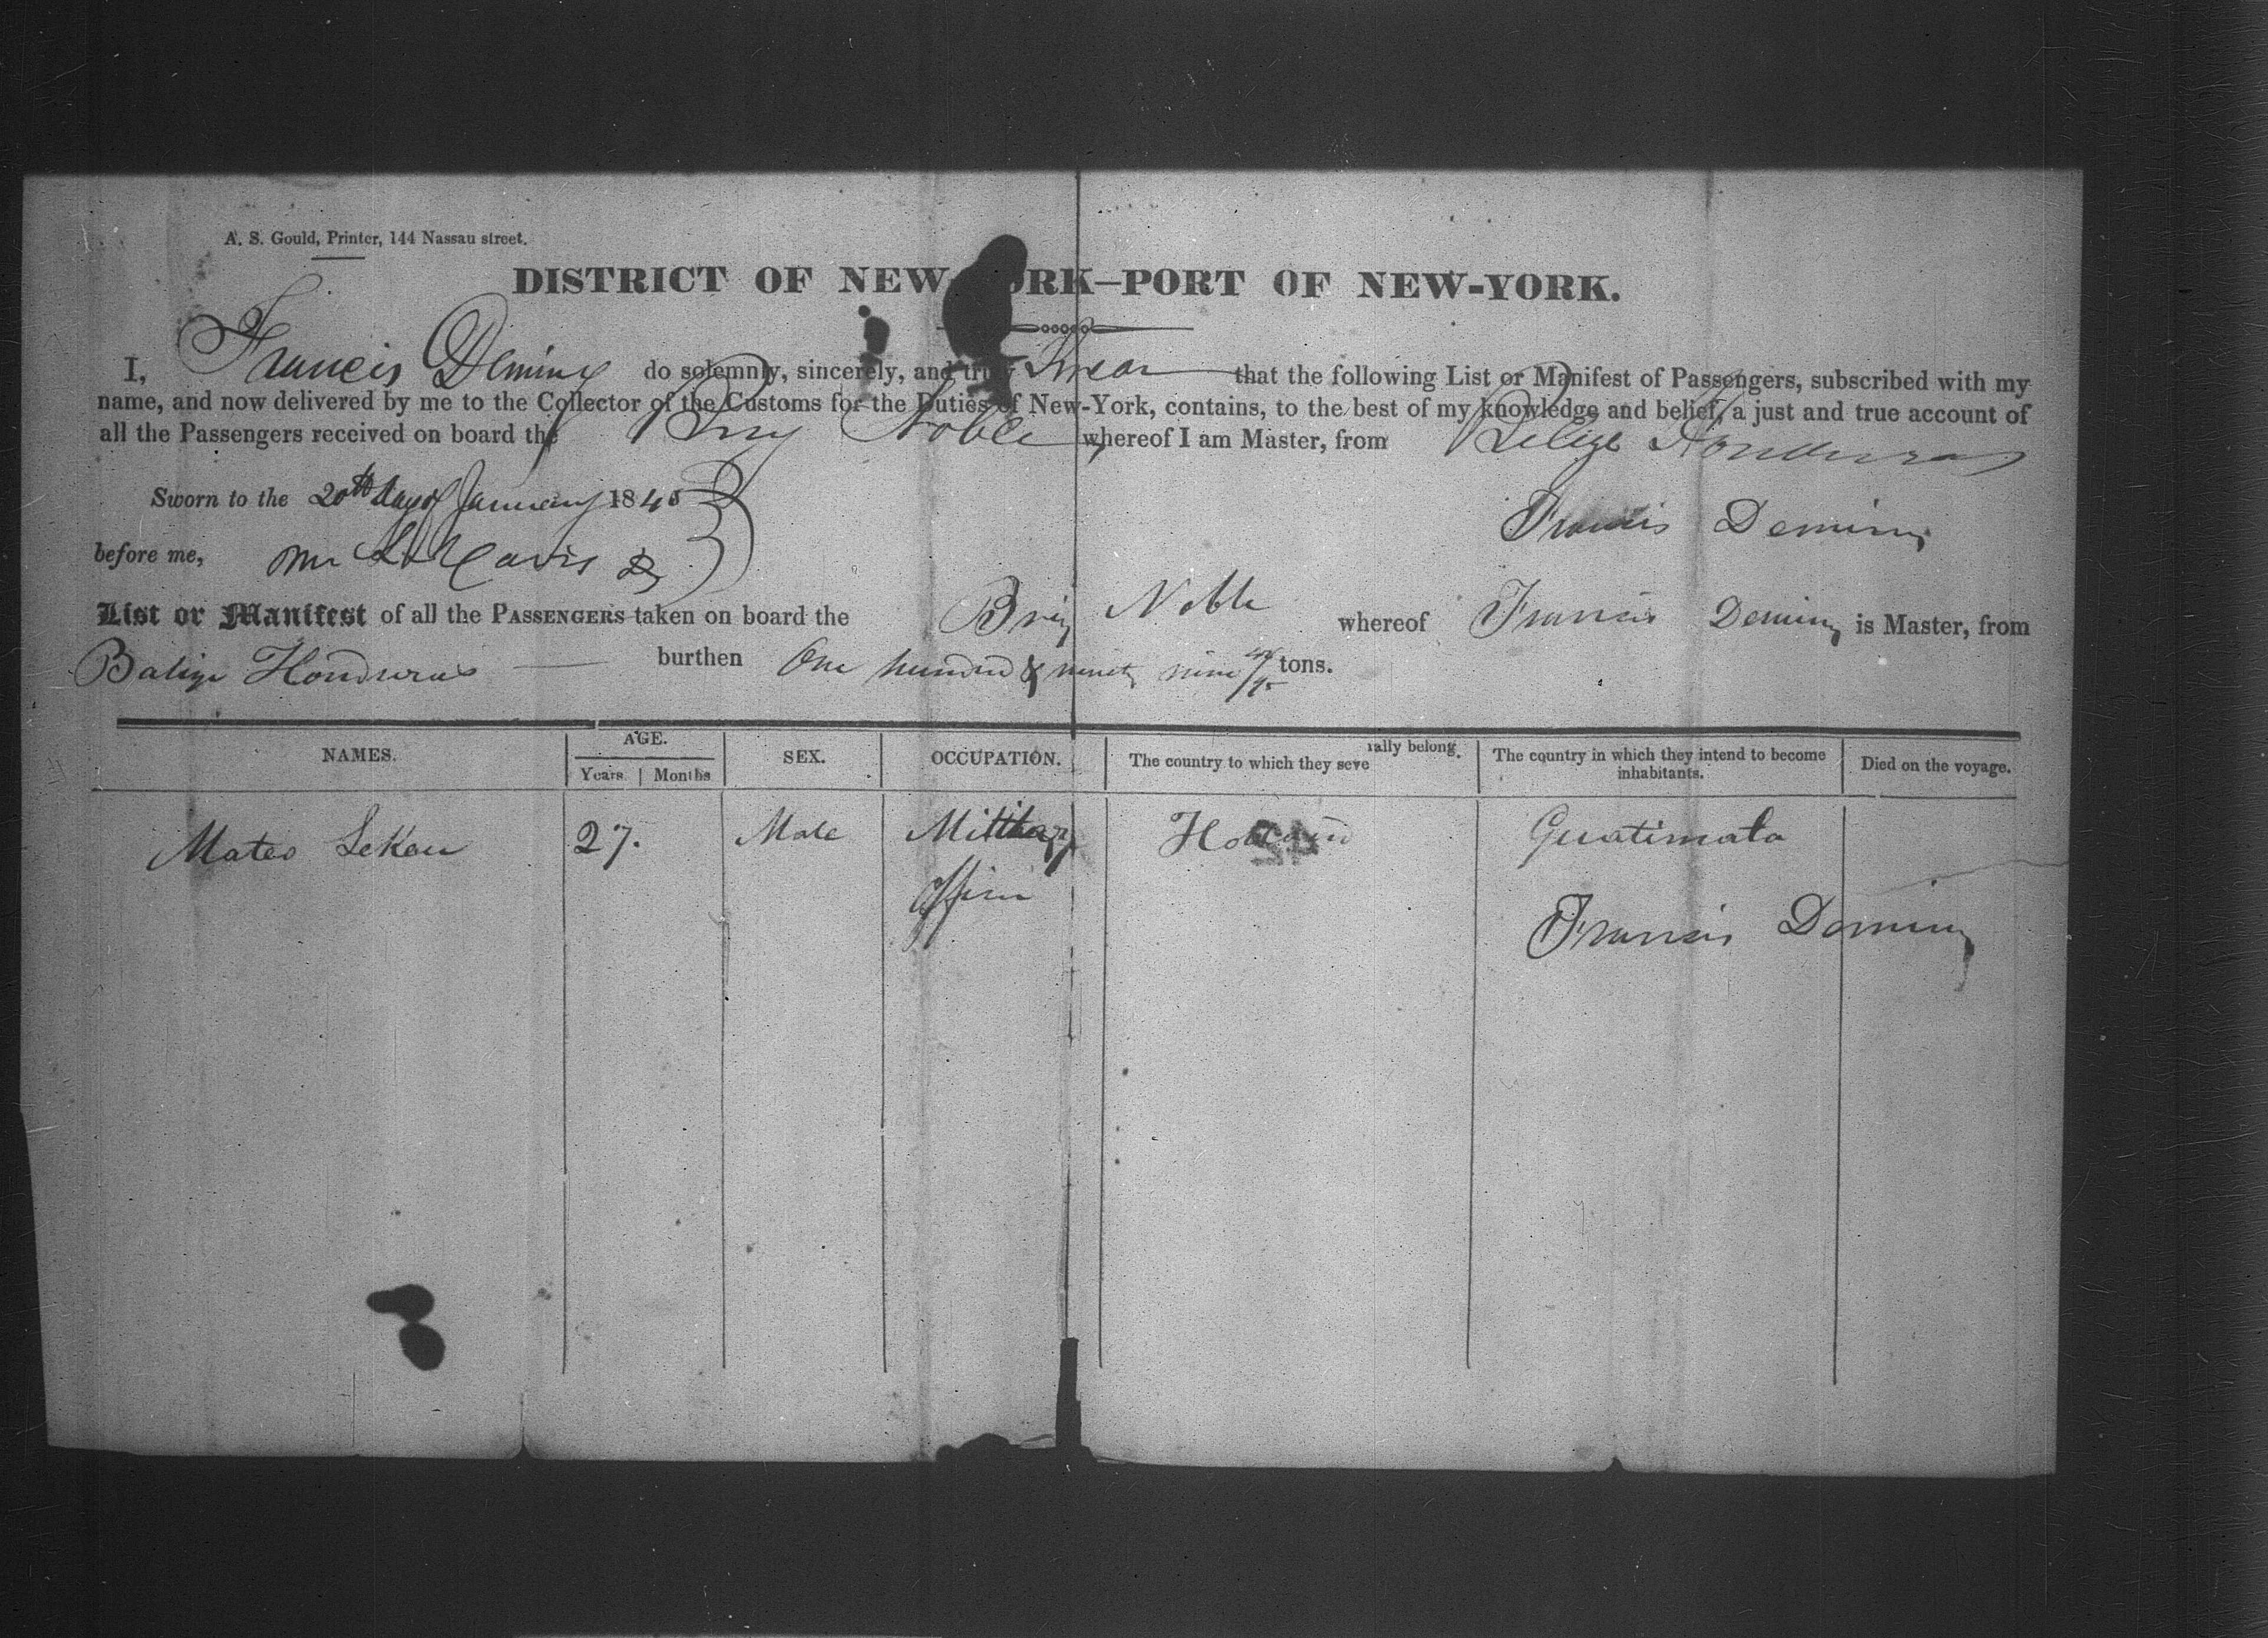 A. S. Gould, Printer, 144 Nassau street.
DISTRICT OF NEW-YORK—PORT OF NEW-YORK.
I, Francis Deming do solemnly, sincerely, and truly Swear that the following List or Manifest of Passengers, subscribed with my
name, and now delivered by me to the Collector of the Customs for the Duties of New-York, contains, to the best of my knowledge and belief, a just and true account of
all the Passengers received on board the Brig Noble whereof I am Master, from Belize Honduras
Sworn to the 20th day of January 1845
Francis Deming
before me,
List or Manifest of all the PASSENGERS taken on board the Brig Noble whereof Francis Deming is Master, from
Balize Honduras burthen One hundred & ninety nine tons.
NAMES. AGE. SEX. OCCUPATION. The country to which they severally belong. The country in which they intend to become inhabitants. Died on the voyage.
Years. Months
Mateo 27. Male Military Guatimala
Francis Deming